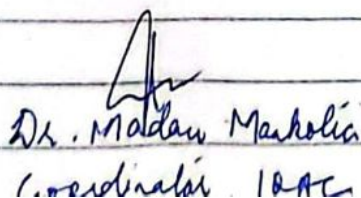 Dr. Madan Markolia
Coordinator IQAC